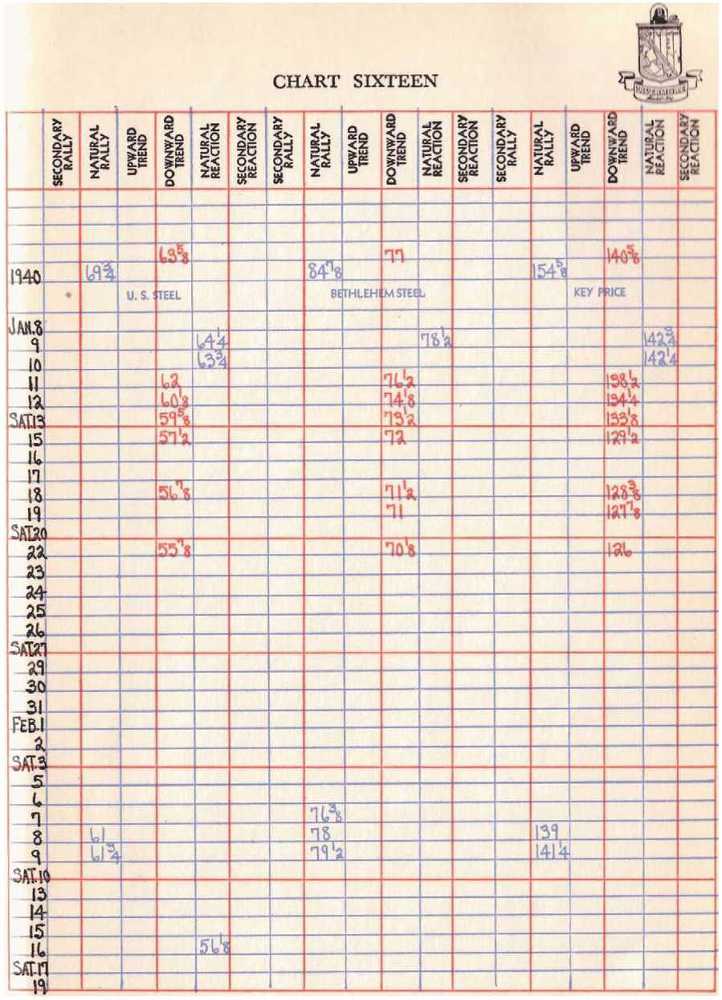 LIVERMORE
CHART SIXTEEN
SECONDARY RALLY NATURAL RALLY UPWARD TREND DOWNWARD TREND NATURAL REACTION SECONDARY REACTION SECONDARY RALLY NATURAL RALLY UPWARD TREND DOWNWARD TREND NATURAL REACTION SECONDARY REACTION SECONDARY RALLY NATURAL RALLY UPWARD TREND DOWNWARD TREND NATURAL REACTION SECONDARY REACTION
63 5/8 77 140 5/8
1940 69 3/4 84 7/8 154 5/8
U. S. STEEL BETHLEHEM STEEL KEY PRICE
JAN. 8
9 64 1/4 78 1/2 142 3/4
10 63 3/4 142 1/4
11 62 76 1/2 138 1/2
12 60 1/8 74 1/8 134 1/4
SAT.13 59 5/8 73 1/2 133 1/8
15 57 1/2 72 129 1/2
16
17
18 56 7/8 71 1/2 128 3/8
19 71 127 7/8
SAT.20
22 55 7/8 70 1/8 126
23
24
25
26
SAT.27
29
30
31
FEB.1
2
SAT.3
5
6
7 76 3/8
8 61 78 139
9 61 3/4 79 1/2 141 1/4
SAT.10
13
14
15
16 56 1/8
SAT.17
19